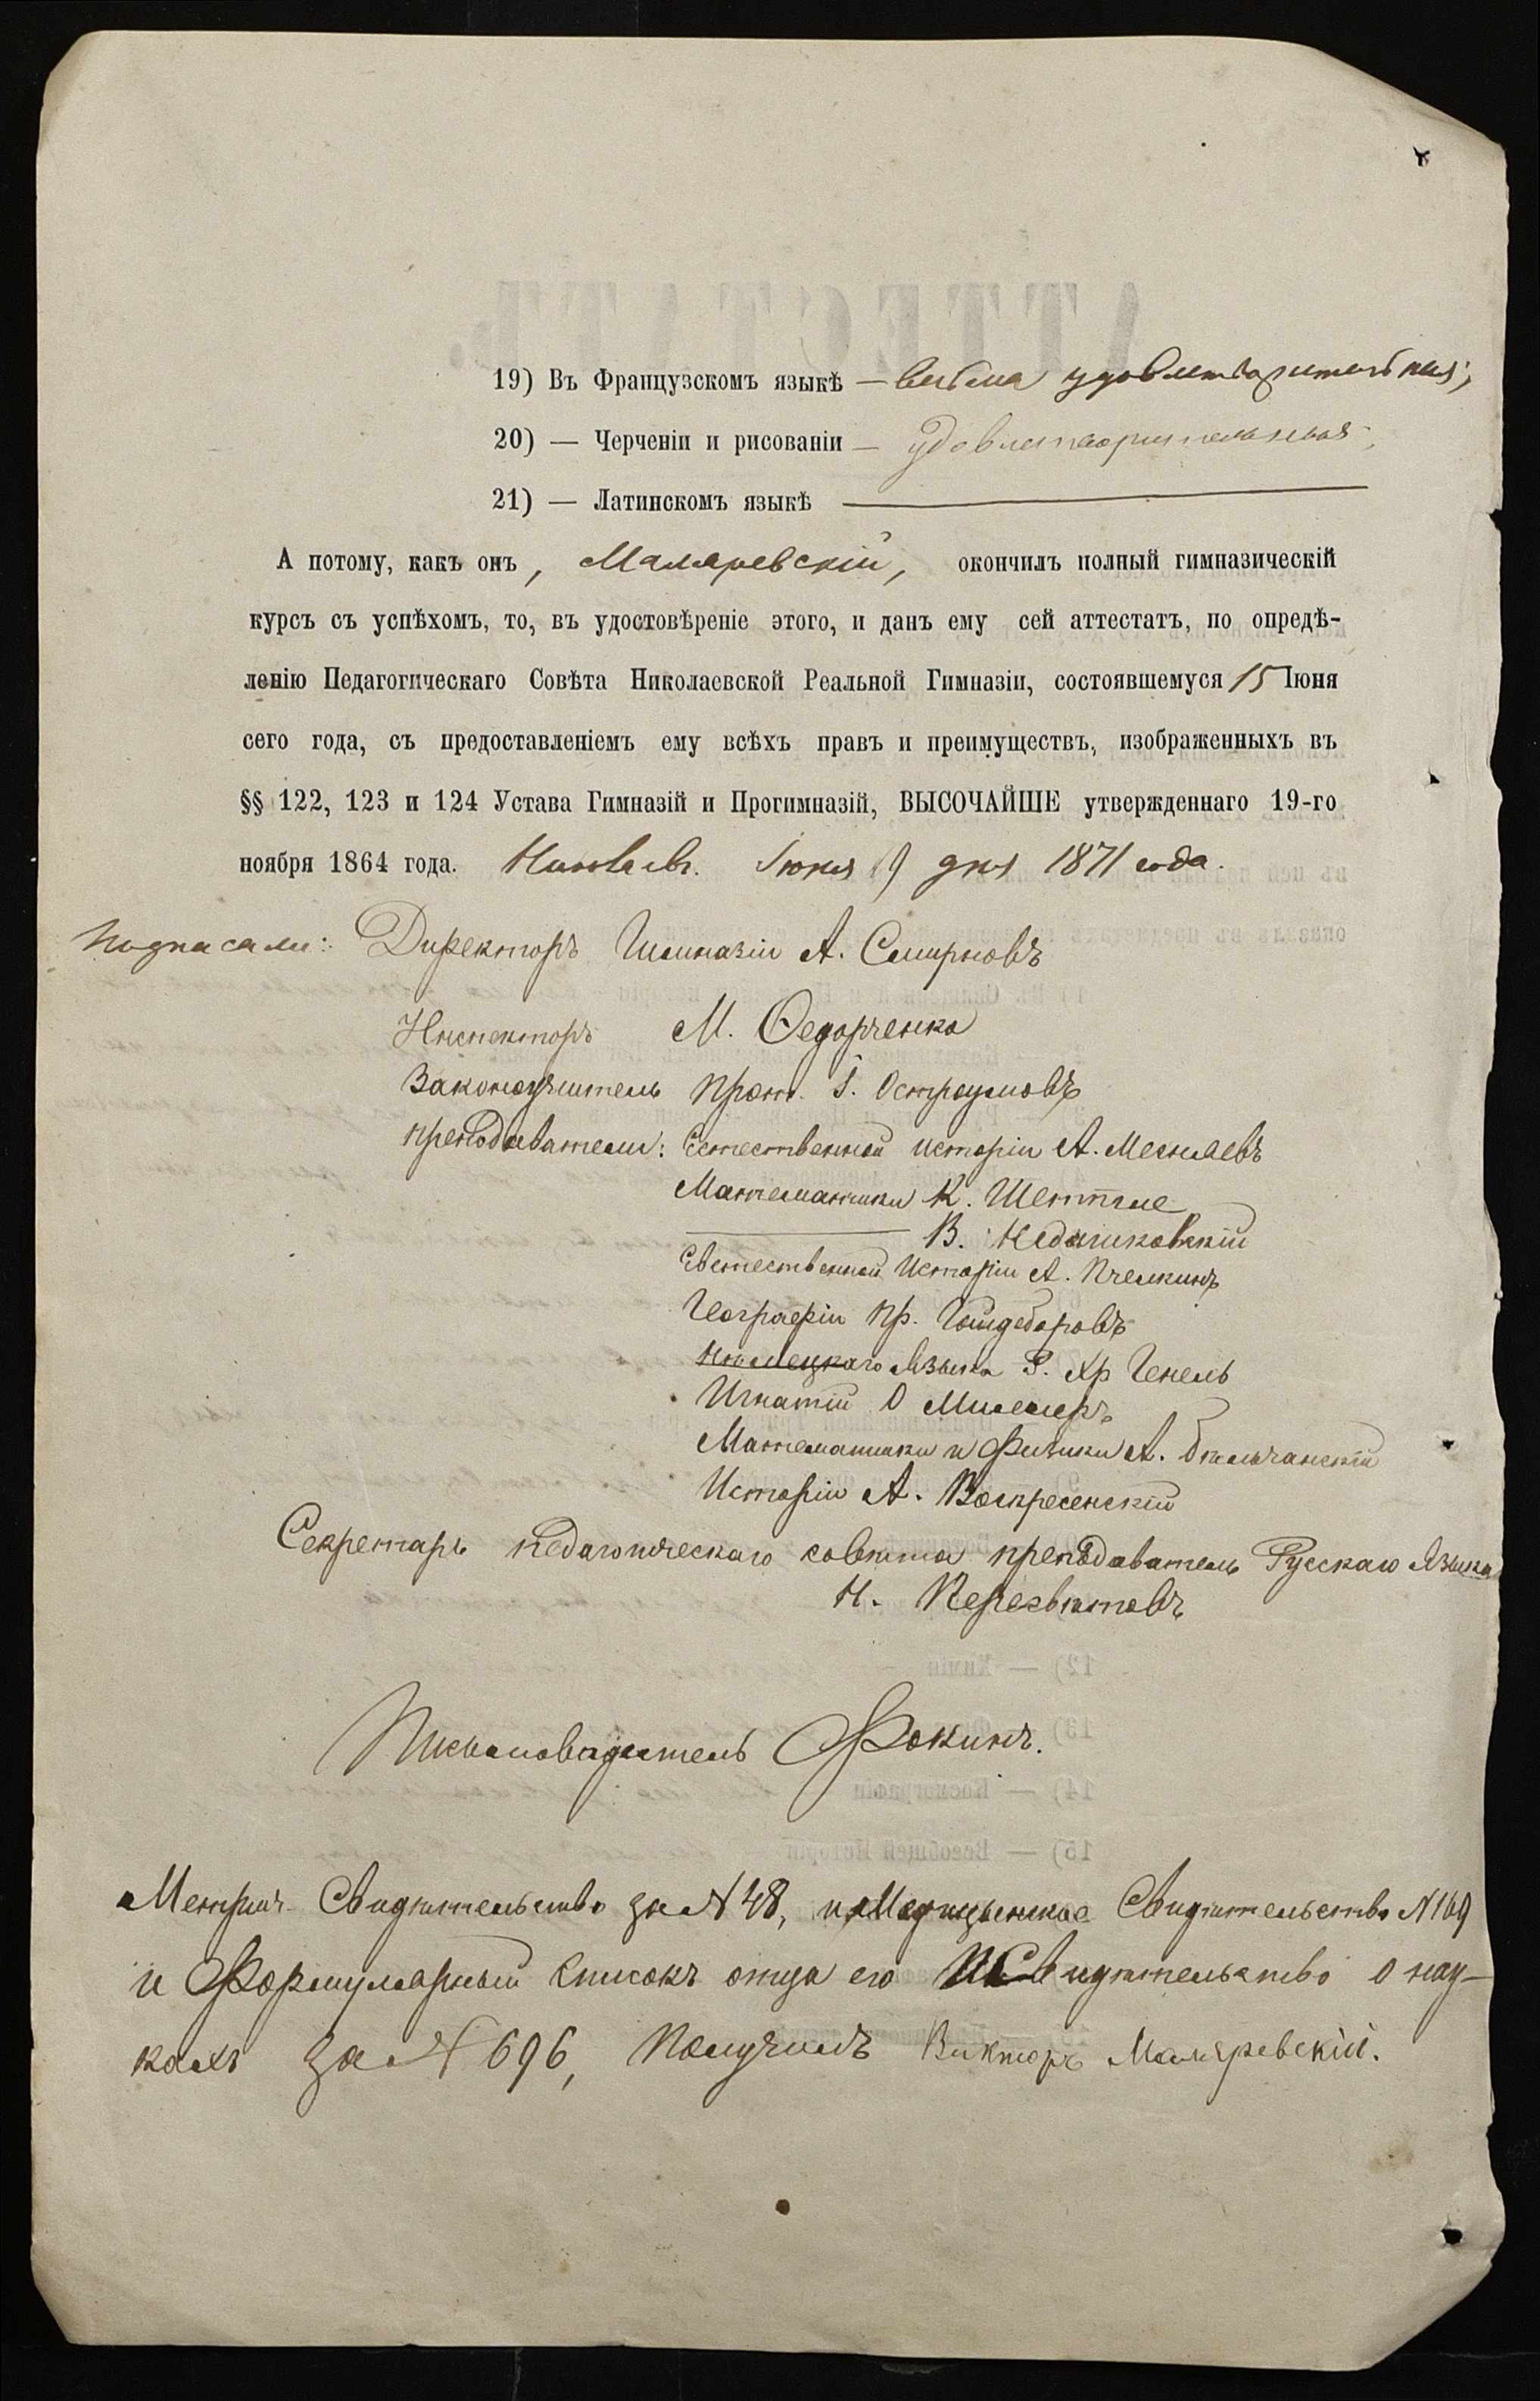 19) Въ Французскомъ языкѣ — весьма удовлетворительныя;
20) — Черченіи и рисованіи — удовлетворительныя;
21) — Латинскомъ языкѣ —
А потому, какъ онъ, Маляревскій, окончилъ полный гимназическій
курсъ съ успѣхомъ, то, въ удостовѣреніе этого, и данъ ему сей аттестатъ, по опредѣ-
ленію Педагогическаго Совѣта Николаевской Реальной Гимназіи, состоявшемуся 15 Іюня
сего года, съ предоставленіемъ ему всѣхъ правъ и преимуществъ, изображенныхъ въ
§§ 122, 123 и 124 Устава Гимназій и Прогимназій, ВЫСОЧАЙШЕ утвержденнаго 19-го
ноября 1864 года. Николаевъ. Іюня 19 дня 1871 года.
Подписали: Директоръ Гимназіи А. Смирновъ
Инспекторъ М. Ѳедорченко
Законоучитель Прот. І. Остроумовъ
Преподаватели: Естественной исторіи А.
Математики К.
— В. Недзиковскій
Естественной Исторіи А. Пчелкинъ
Географіи Пр.
Нѣмецкаго Языка Хр Генель
Игнатій О Миллеръ
Математики и Физики А.
Исторіи А. Воскресенскій
Секретарь педагогическаго совѣта преподаватель Русскаго Языка
Н. Пересвѣтовъ
Письмоводитель Фокинъ.
Метрич. Свидѣтельство за № 48, и Медицынское Свидѣтельство № 169
и Формулярный Списокъ отца его и Свидѣтельство о нау-
кахъ за № 696, Получилъ Викторъ Маляревскій.